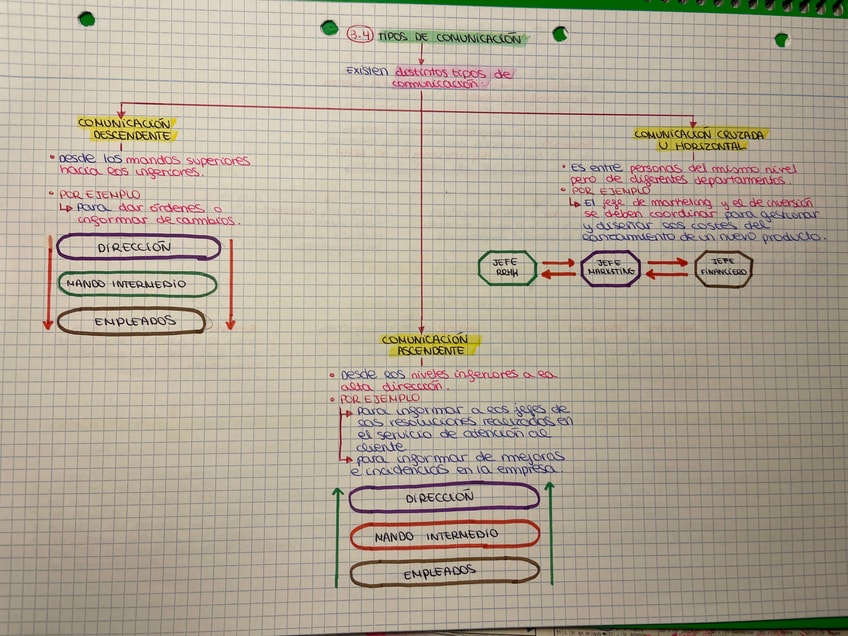 3.4 TIPOS DE COMUNICACIÓN
EXISTEN distintos tipos de
comunicación:
COMUNICACIÓN
DESCENDENTE
• Desde los mandos superiores
hacia los inferiores.
• POR EJEMPLO
↳ Para dar órdenes o
informar de cambios.
DIRECCIÓN
MANDO INTERMEDIO
EMPLEADOS
COMUNICACIÓN CRUZADA
U HORIZONTAL
• Es entre personas del mismo nivel
pero de diferentes departamentos.
• POR EJEMPLO
↳ El jefe de marketing y el de inversión
se deben coordinar para gestionar
y diseñar los costes del
lanzamiento de un nuevo producto.
JEFE
RRHH
JEFE
MARKETING
JEFE
FINANCIERO
COMUNICACIÓN
ASCENDENTE
• Desde los niveles inferiores a la
alta dirección.
• POR EJEMPLO
Para informar a los jefes de
las resoluciones realizadas en
el servicio de atención al
cliente
para informar de mejoras
e incidencias en la empresa.
DIRECCIÓN
MANDO INTERMEDIO
EMPLEADOS